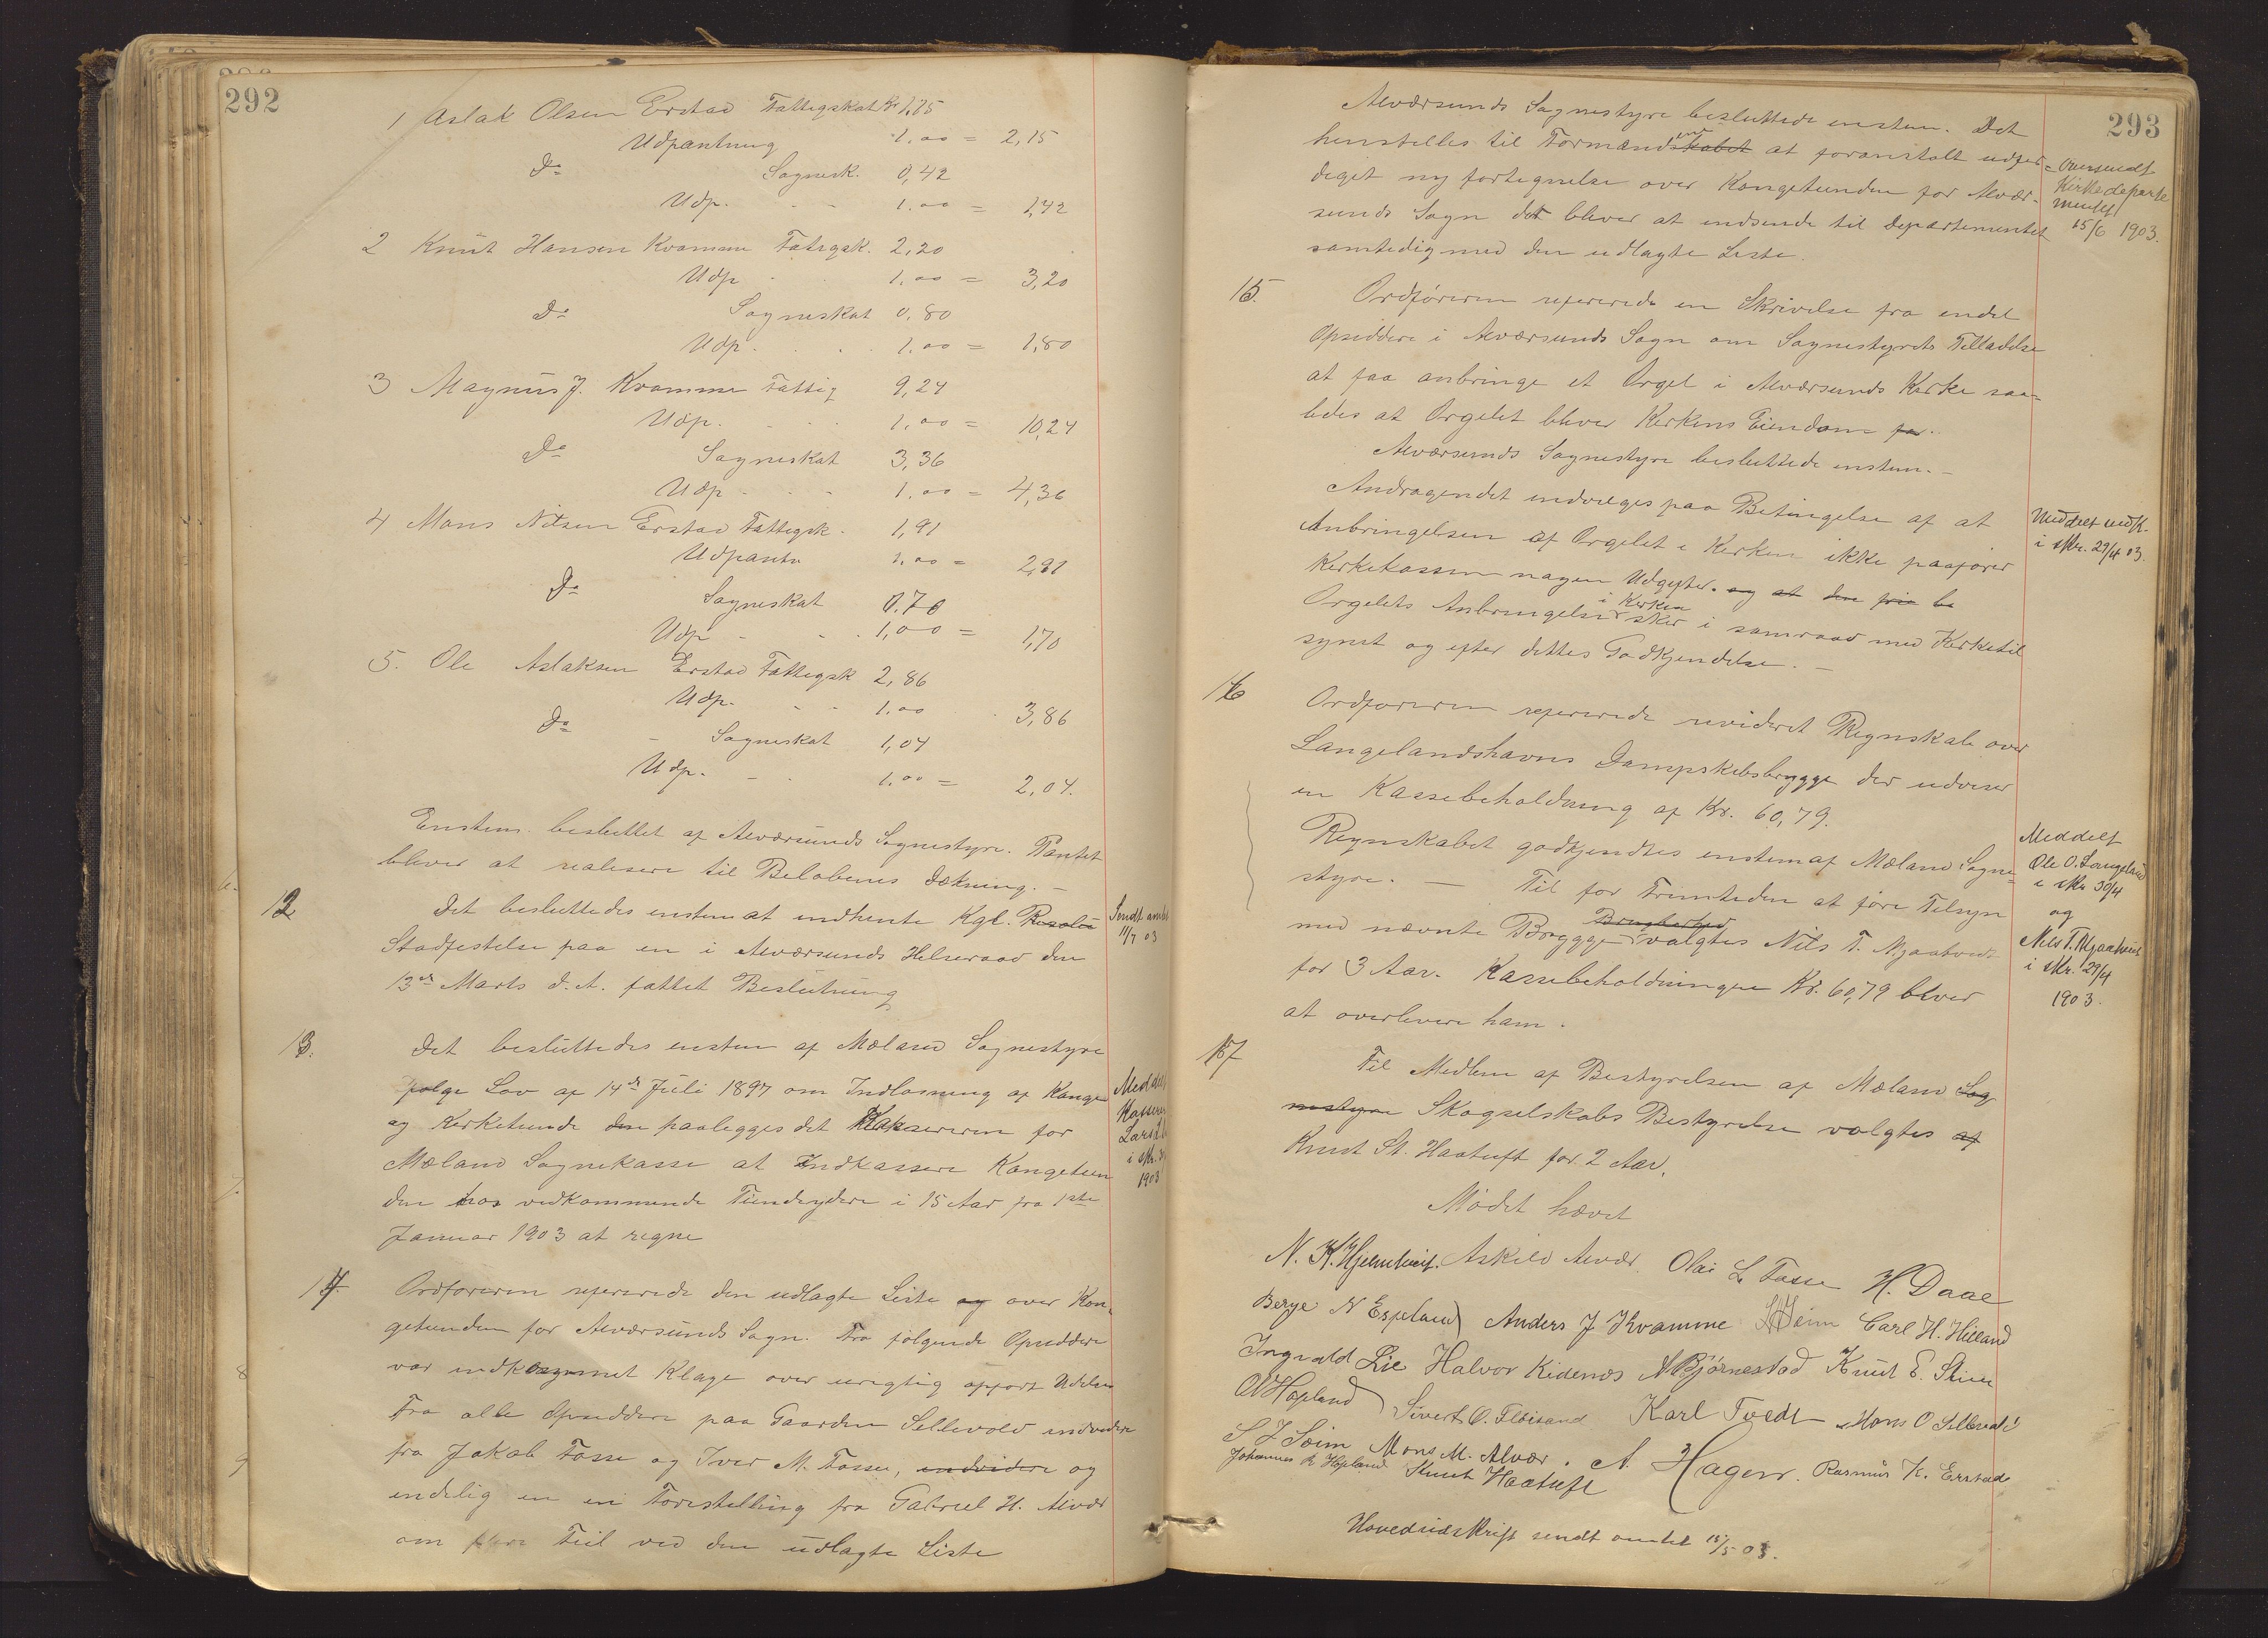 292
1 Aslak Olsen Erstad Fattigskat Kr 1,15
Udpantning 1,00 = 2,15
Do Sognesk. 0,42
Udp. 1.00 = 1,42
2 Knut Hansen Kvamme Fatigsk. 2,20
Udp 1,00 = 3,20
Do Sogneskat 0,80
Udp. 1.00 = 1,80
3 Magnus J. Kvamme Fattig 9,24
Udp. 1,00 = 10,24
Do Sogneskat 3,36
Udp 1,00 = 4,36
4 Mons Nilsen Erstad Fattigsk. 1,91
Udpantn 1,00 = 2,91
Do Sogneskat 0.70
Udp 1,00 = 1,70
5. Ole Aslaksen Erstad Fattigsk 2,86
Udp. 1.00 3,86
Do Sogneskat 1,04
Udp. 1.00 = 2,04.
Enstem. besluttet af Alværsunds Sognestyre. Pantet
bliver at realisere til Beløbenes Dækning. –
12 Det besluttedes enstem at indhente Kgl. Resolu
Stadfestelse paa en i Alværsunds Helseraad den
13de Marts d. A. fattet Beslutning
Sendt amtet
11/7 03
13. Det besluttedes enstem af Mæland Sognestyre
følge Lov af 14de Juli 1897 om Indløsning af Konge
og Kirketiende den paalegges det Kasereren for
Mæland Sognekasse at Indkassere Kongetien
den hos vedkommende Tiendeydere i 15 Aar fra 1ste
Januar 1903 at regne
Meddelt
Kasserer
Lars
i skr.
1903
14 Ordføreren refererede den udlagte Liste og over Kon-
getienden for Alværsunds Sogn. Fra følgende Opsiddere
var indkommet Klage over urigtig opført
Fra alle Opsiddere paa Gaarden Sellevold endvidere
fra Jakob Fosse og Iver M. Fosse, endvidere og
endelig en en Forestilling fra Gabriel H. Alvær
om flere Feil ved den udlagte Liste
293
Alværsunds Sognestyre besluttede enstem. Det
henstilles til Formændskabet en at foranstalt udfær-
diget ny fortegnelse over Kongetienden for Alvær-
sunds Sogn der bliver at indsende til Departementet
samtedig med den udlagte Liste.
Oversendt
Kirkedeparte
mentet
15/6 1903.
15. Ordføreren refererede en Skrivelse fra endel
Opsiddere i Alværsunds Sogn om Sognestyrets Tilladelse
at faa anbringe et Orgel i Alværsunds Kirke saa-
ledes at Orgelet bliver Kirkens Eiendom for.
Alværsunds Sognestyre besluttede enstem. –
Andragendet indvilges paa Betingelse af at
Anbringelsen af Orgelet i Kirken ikke paafører
Kirkekassen nogen Udgifter. og at den frie be
Orgelets Anbringelse i Kirken sker i samraad med Kirketil
synet og efter dettes Godkjendelse. –
Meddelt vedk.
i skr. 29/4 03.
16 Ordføreren refererede revideret Regnskab over
Langelandshavns Dampskibsbrygge der udviser
en Kassebeholdning af Kr. 60,79.
Regnskabet godkjendtes enstem af Mæland Sogne-
styre. – Til for Fremtiden at føre Tilsyn
med nævnte Brygge valgtes Nils T. Mjaatvedt
for 3 Aar. Kassebeholdningen Kr. 60,79 bliver
at overlevere ham.
Meddelt
Ole O. Langeland
i skr 30/4
og
Nils T. Mjaatvedt
i skr. 29/4
1903.
17 Til Medlem af Bestyrelsen af Mæland Sog
nestyre Skogselskabs Bestyrelse valgtes af
Knut St. Haatuft for 2 Aar.
Mødet hævet
N. K. Hjelmtveit. Askild Alvær Olai L Fosse H. Daae
Berge N Espeland Anders J Kvamme Heim Carl H. Hilland
Ingvald Lie Halvor Kidenæs Bjørnestad Knut E. Skeie
O Hopland Sivert O. Fløisand Karl Tvedt Mons O Sellevold
S J Soim Mons M. Alvær. A. Hagen. Rasmus K. Erstad
Johannes R Hopland Knut Haatuft
Hovedudskrift sendt amtet 15/5 03.